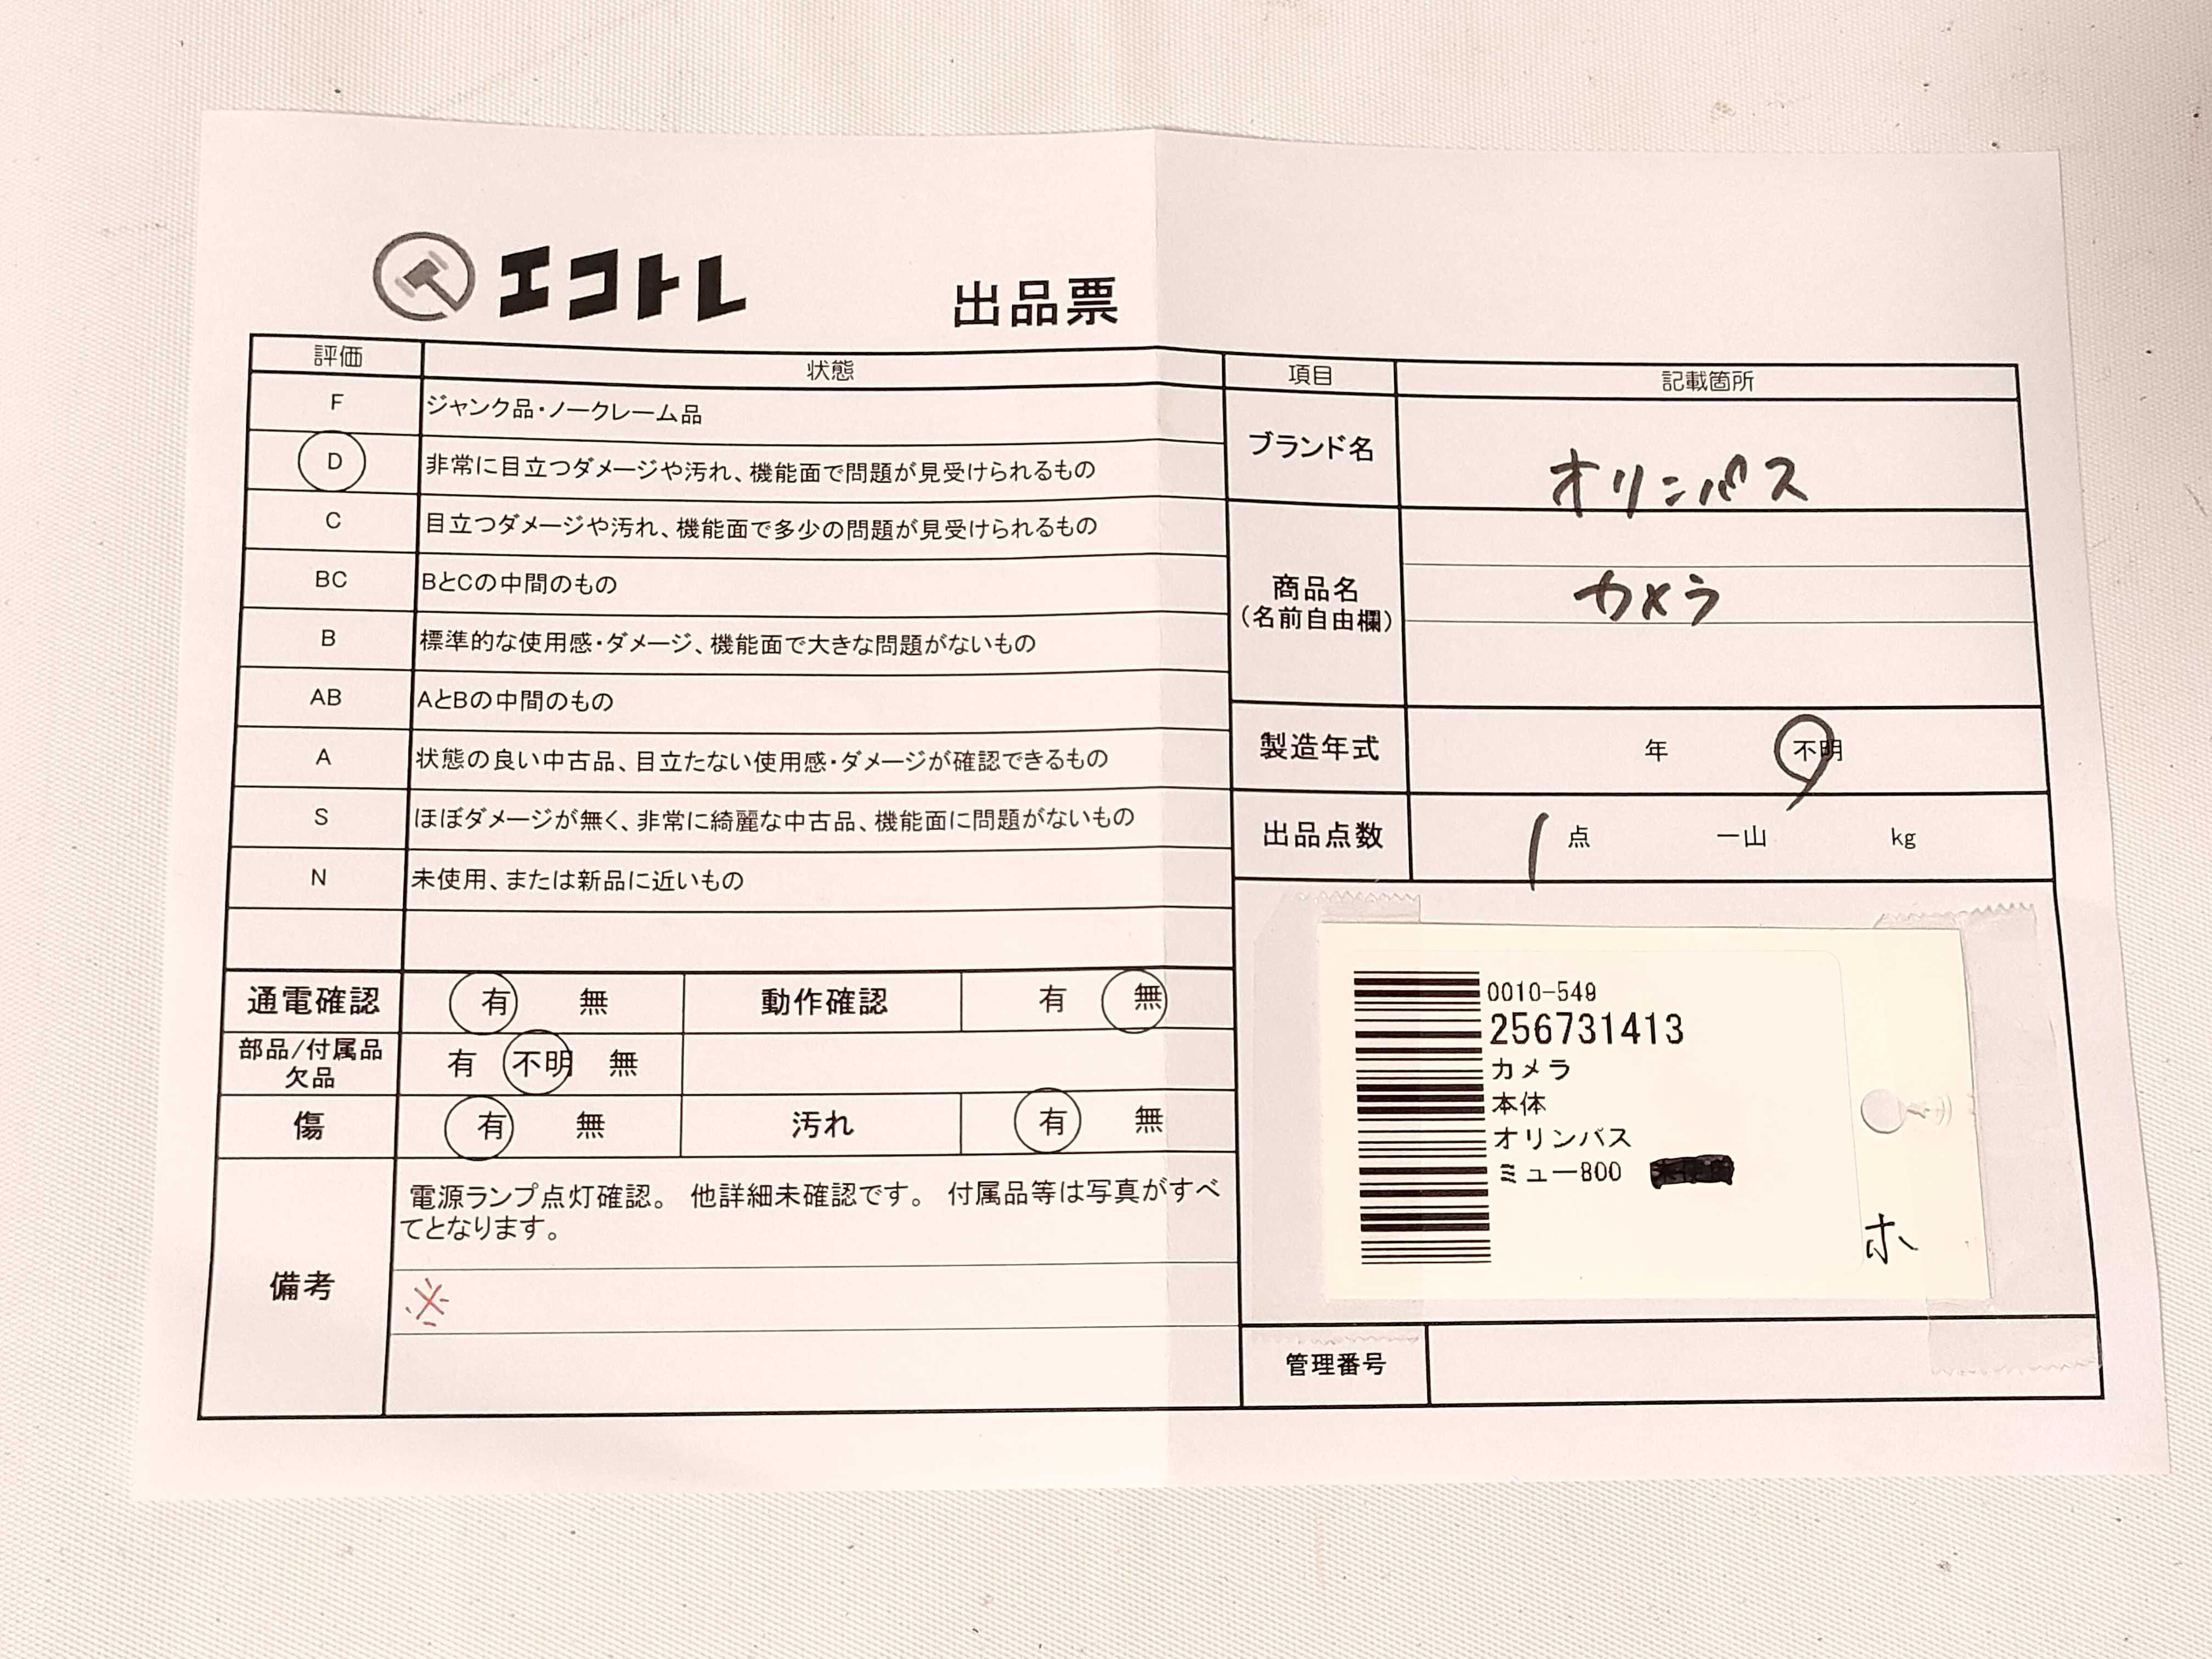 エコトレ 出品票
評価 状態
F ジャンク品・ノークレーム品
D 非常に目立つダメージや汚れ、機能面で問題が見受けられるもの
C 目立つダメージや汚れ、機能面で多少の問題が見受けられるもの
BC BとCの中間のもの
B 標準的な使用感・ダメージ、機能面で大きな問題がないもの
AB AとBの中間のもの
A 状態の良い中古品、目立たない使用感・ダメージが確認できるもの
S ほぼダメージが無く、非常に綺麗な中古品、機能面に問題がないもの
N 未使用、または新品に近いもの
通電確認 有 無 動作確認 有 無
部品/付属品
欠品 有 不明 無
傷 有 無 汚れ 有 無
備考
電源ランプ点灯確認。 他詳細未確認です。 付属品等は写真がすべ
てとなります。
※
項目 記載箇所
ブランド名 オリンパス
商品名
(名前自由欄)
カメラ
製造年式 年 不明
出品点数 1 点 一山 kg
0010-549
256731413
カメラ
本体
オリンパス
ミュー800
ホ
管理番号